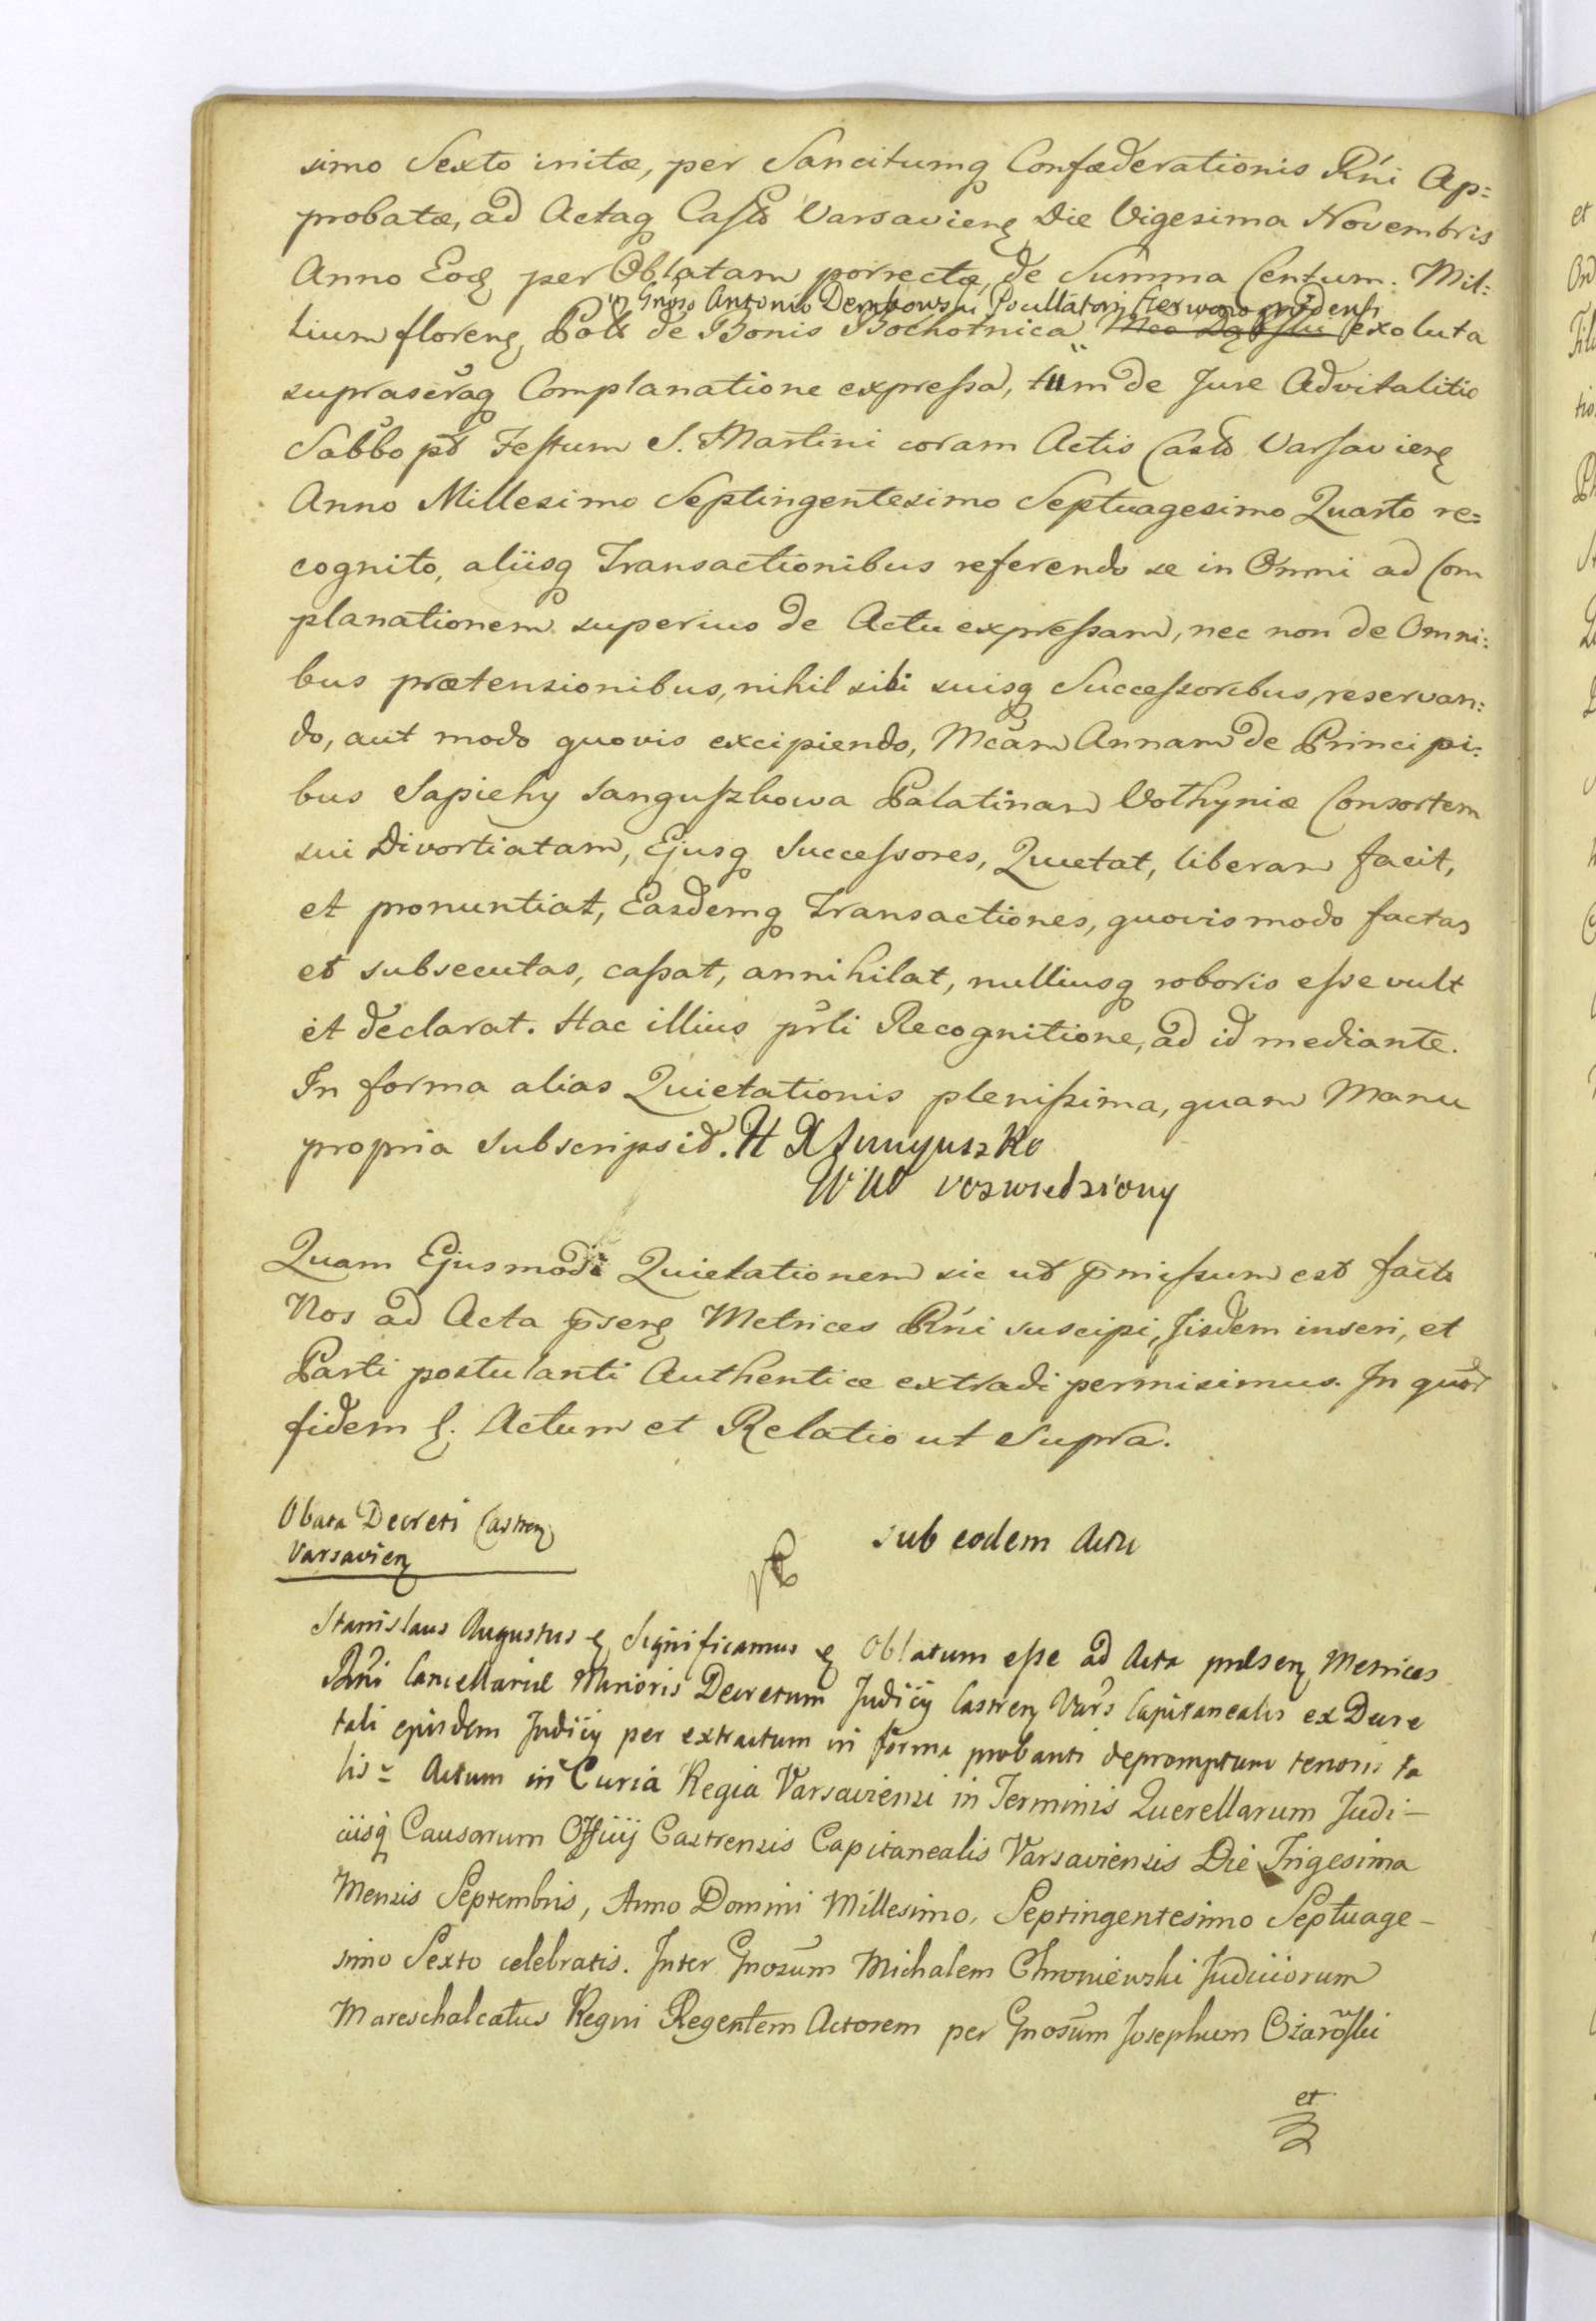 simo Sexto initæ, per Sancitumq Confæderationis Rńi Ap=
probatæ, ad Actaq Casto Varsavienę Die Vigesima Novembris
Anno Eoq per Oblatam porrectæ, de Summa Centum Mil:
Gnoso Antonio Dembowski Pocillatori Czerwono grodensi
lium florenę Pols de Bonis Bochotnica exoluta
supraserãq Complanatione expreſsa, tum de Jure Advitalitio
Sabbo pt Festum S. Martini coram Actis Casto Varsavienę
Anno Millesimo Septingentesimo Septuagesimo Quarto re=
cognito, aliisq Transactionibus referendo se in Omni ad Com
planationem superius de Actu expreſsam, nec non de Omni:
bus prætensionibus, nihil sibi suisq Succeſsoribus, reservan:
do, aut modo quovis excipiendo, Mcam Annam de Principi:
bus Sapiehy Sanguſzkowa Palatinam Volhyniæ Consortem
sui Divortiatam, Ejusq Succeſsores, Quietat, liberam facit,
et pronuntiat, Easdemq Transactiones, quovismodo factas
et subsecutas, caſsat, annihilat, nulliusq roboris eſse vult
et declarat. Hac illius prti Recognitione, ad id mediante.
In forma alias Quietationis pleniſsima, quam Manu
propria Subscripsit. H X Sanguszko
WW rozwiedziony
Quam Ejusmodi Quietationem sic ut pmiſsum est factã
Nos ad Acta psenę Metrices Rńi suscipi, Jisdem inseri, et
Parti postulanti Authentice extradi permisimus. In quor
fidem ę. Actum et Relatio ut Supra.
Obata Decreti Castrenę
Varsavienę
sub eodem Actu
Stanislaus Augustus ę Significamus ę Oblatum eſse ad Acta præsenę Metrices
Rńi Cancellariæ Minoris Decretum Judicij Castrenę Vars Capitanealis ex Decre
tali ejusdem Judicij per extractum in forma probanti depromptum tenoris ta
lis = Actum in Curia Regia Varsaviensi in Terminis Querellarum Judi-
ciisq Causarum Officij Castrensis Capitanealis Varsaviensis Die Trigesima
Mensis Septembris, Anno Domini Millesimo, Septingentesimo Septuage-
simo Sexto celebratis. Inter Gnosum Michalem Chroniewski Judiciorum
Mareschalcatus Regni Regentem Actorem per Gnosum Josephum Ożarowski
et